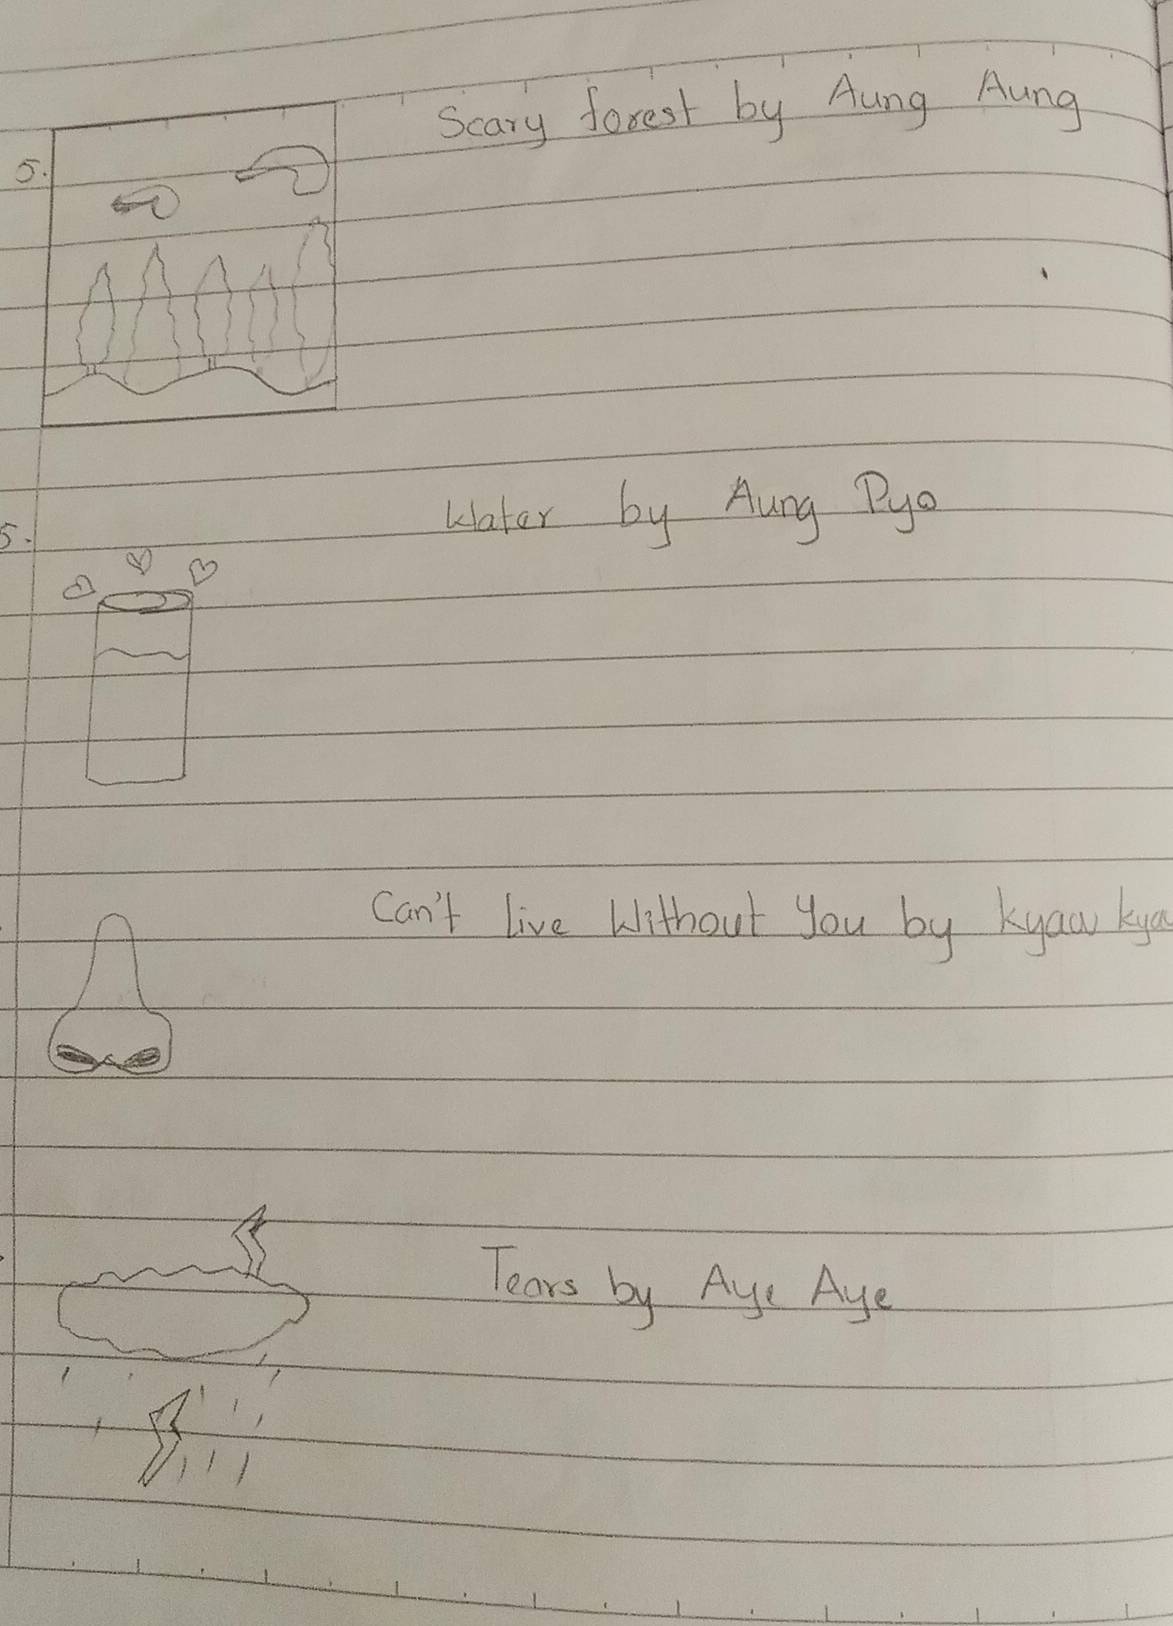 5. Scary forest by Aung Aung
5. Water by Aung Pyo
Can't live Without You by kyaw
Tears by Aye Aye